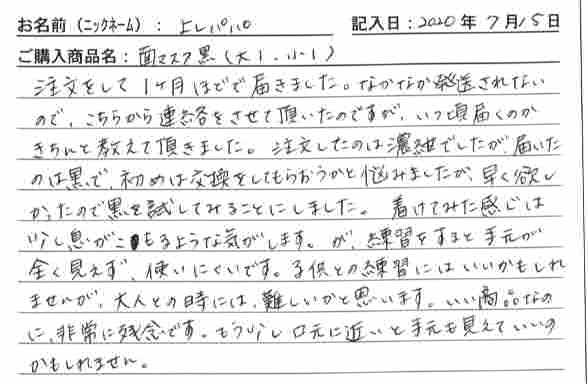 お名前（ニックネーム）：上レパパ 記入日：2020年 7月15日
ご購入商品名：面マスク黒（大1. 小1）
注文をして1ヶ月ほどで届きました。なかなか発送されない
ので、こちらから連絡をさせて頂いたのですが、いつ頃届くのか
きちんと教えて頂きました。注文したのは濃紺でしたが、届いた
のは黒で、初めは交換をしてもらおうかと悩みましたが、早く欲し
かったので黒を試してみることにしました。着けてみた感じは
少し息がこもるような気がします。が、練習をすると手元が
全く見えず、使いにくいです。子供との練習にはいいかもしれ
ませんが、大人との時には、難しいかと思います。いい商品なの
に、非常に残念です。もう少し口元に近いと手元も見えていいの
かもしれません。